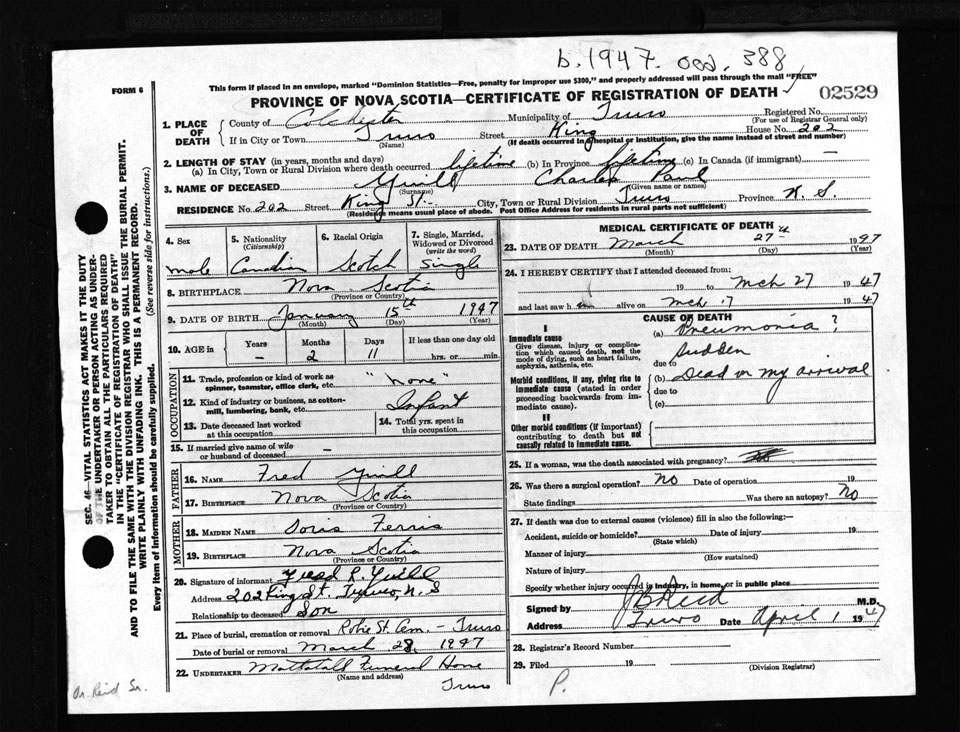 b. 1947. 388
This form if placed in an envelope, marked "Dominion Statistics—Free, penalty for improper use $300," and properly addressed will pass through the mail "FREE"
FORM 6
PROVINCE OF NOVA SCOTIA—CERTIFICATE OF REGISTRATION OF DEATH
02529
1. PLACE OF DEATH
County of Colchester Municipality of Truro Registered No.
(For use of Registrar General only)
If in City or Town Truro Street King House No. 202
(Name) (If death occurred in hospital or institution, give name instead of street and number)
2. LENGTH OF STAY (in years, months and days)
(a) In City, Town or Rural Division where death occurred lifetime (b) In Province lifetime (c) In Canada (if immigrant) —
3. NAME OF DECEASED Yuill Charles Paul
(Surname) (Given name or names)
RESIDENCE No. 202 Street King St. City, Town or Rural Division Truro Province N. S.
(Residence means usual place of abode. Post Office Address for residents in rural parts not sufficient)
4. Sex
male
5. Nationality
(Citizenship)
Canadian
6. Racial Origin
Scotch
7. Single, Married, Widowed or Divorced
(write the word)
Single
8. BIRTHPLACE Nova Scotia
(Province or Country)
9. DATE OF BIRTH January 15th 1947
(Month) (Day) (Year)
10. AGE in Years Months Days If less than one day old
— 2 11 hrs. or min.
OCCUPATION
11. Trade, profession or kind of work as spinner, teamster, office clerk, etc. "none"
12. Kind of industry or business, as cotton-mill, lumbering, bank, etc. Infant
13. Date deceased last worked at this occupation
14. Total yrs. spent in this occupation
15. If married give name of wife or husband of deceased —
FATHER
16. NAME Fred Yuill
17. BIRTHPLACE Nova Scotia
(Province or Country)
MOTHER
18. MAIDEN NAME Doris Ferris
19. BIRTHPLACE Nova Scotia
(Province or Country)
20. Signature of informant Fred R. Yuill
Address 202 King St. Truro, N. S
Relationship to deceased Son
21. Place of burial, cremation or removal Robie St. Cem. - Truro
Date of burial or removal March 28, 1947
22. UNDERTAKER Mattatall Funeral Home
(Name and address)
Truro
MEDICAL CERTIFICATE OF DEATH
23. DATE OF DEATH March 27th 1947
(Month) (Day) (Year)
24. I HEREBY CERTIFY that I attended deceased from:
19 to Mch 27 1947
and last saw h im alive on Mch 1947
CAUSE OF DEATH
I
Immediate cause
Give disease, injury or complication which caused death, not the mode of dying, such as heart failure, asphyxia, asthenia, etc.
(a) Pneumonia?
Sudden
due to
Morbid conditions, if any, giving rise to immediate cause (stated in order proceeding backwards from immediate cause).
(b) Dead on my arrival
due to
(c)
II
Other morbid conditions (if important) contributing to death but not causally related to immediate cause.
25. If a woman, was the death associated with pregnancy?
26. Was there a surgical operation? NO Date of operation 19
State findings Was there an autopsy? NO
27. If death was due to external causes (violence) fill in also the following:—
Accident, suicide or homicide? Date of injury 19
(State which)
Manner of injury
(How sustained)
Nature of injury
Specify whether injury occurred in industry, in home, or in public place
Signed by J B Reid M.D.
Address Truro Date April 1 1947
28. Registrar's Record Number
29. Filed 19
(Division Registrar)
P.
Dr. Reid Sr.
SEC. 46—VITAL STATISTICS ACT MAKES IT THE DUTY
OF THE UNDERTAKER OR PERSON ACTING AS UNDERTAKER
TO OBTAIN ALL THE PARTICULARS REQUIRED
IN THE "CERTIFICATE OF REGISTRATION OF DEATH"
AND TO FILE THE SAME WITH THE DIVISION REGISTRAR WHO SHALL ISSUE THE BURIAL PERMIT.
WRITE PLAINLY WITH UNFADING INK. THIS IS A PERMANENT RECORD.
Every item of Information should be carefully supplied. (See reverse side for instructions.)